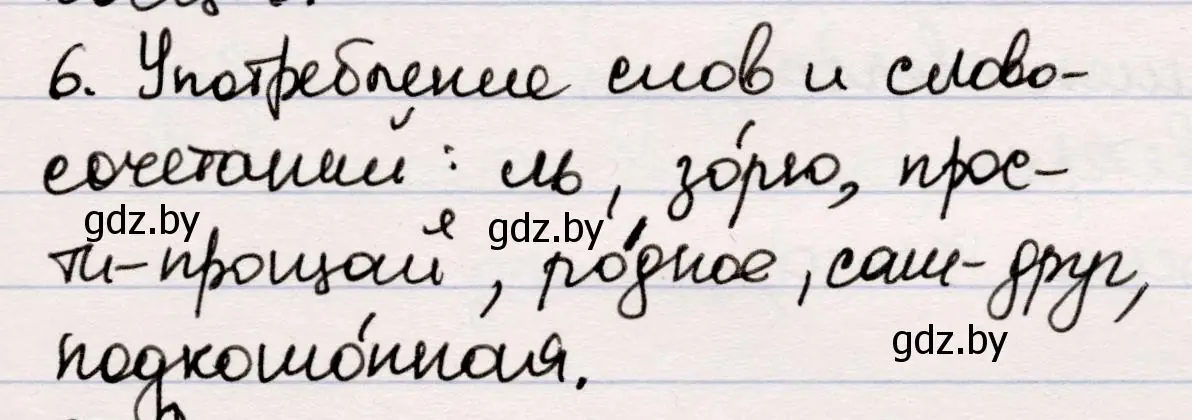 6. Употребление слов и слово-
сочетаний: ль, зо́рю, прос-
ти-прощай, ро́дное, сам-друг,
подкошо́нная.
gdz.by
gdz.by
gdz.by